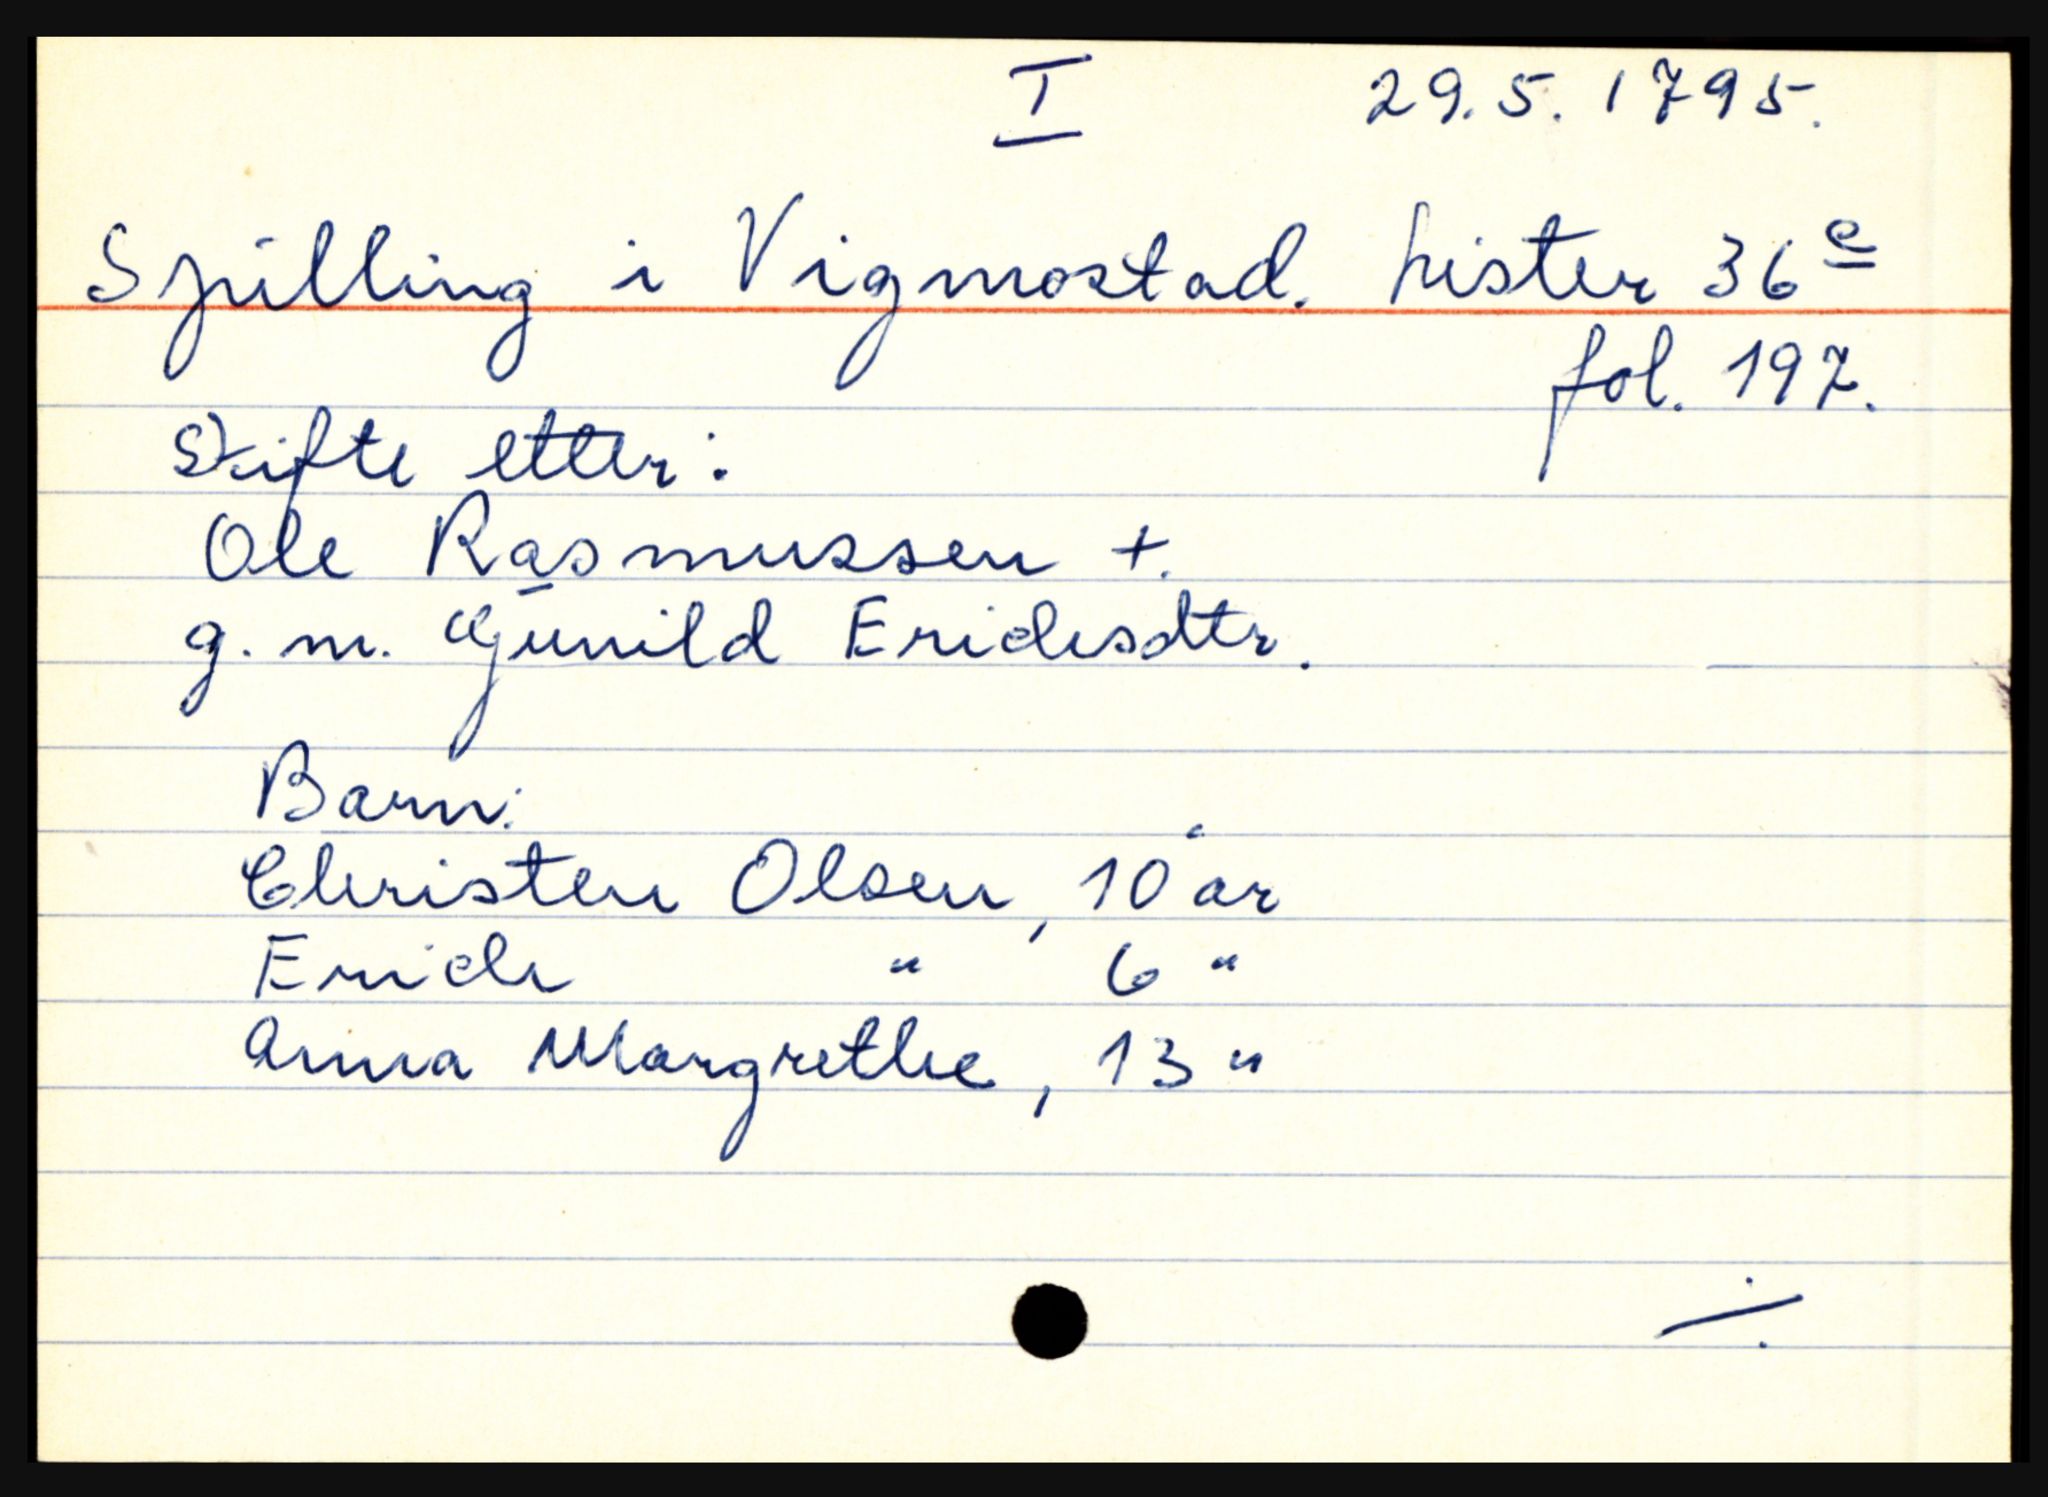 I 29.5.1795.
Spilling i Vigmostad. Lister 36e
fol. 197.
Skifte etter:
Ole Rasmussen +.
g. m. Gunild Erichsdtr.
Barn:
Christen Olsen, 10 år
Erich " 6 "
Anna Margrethe, 13 "